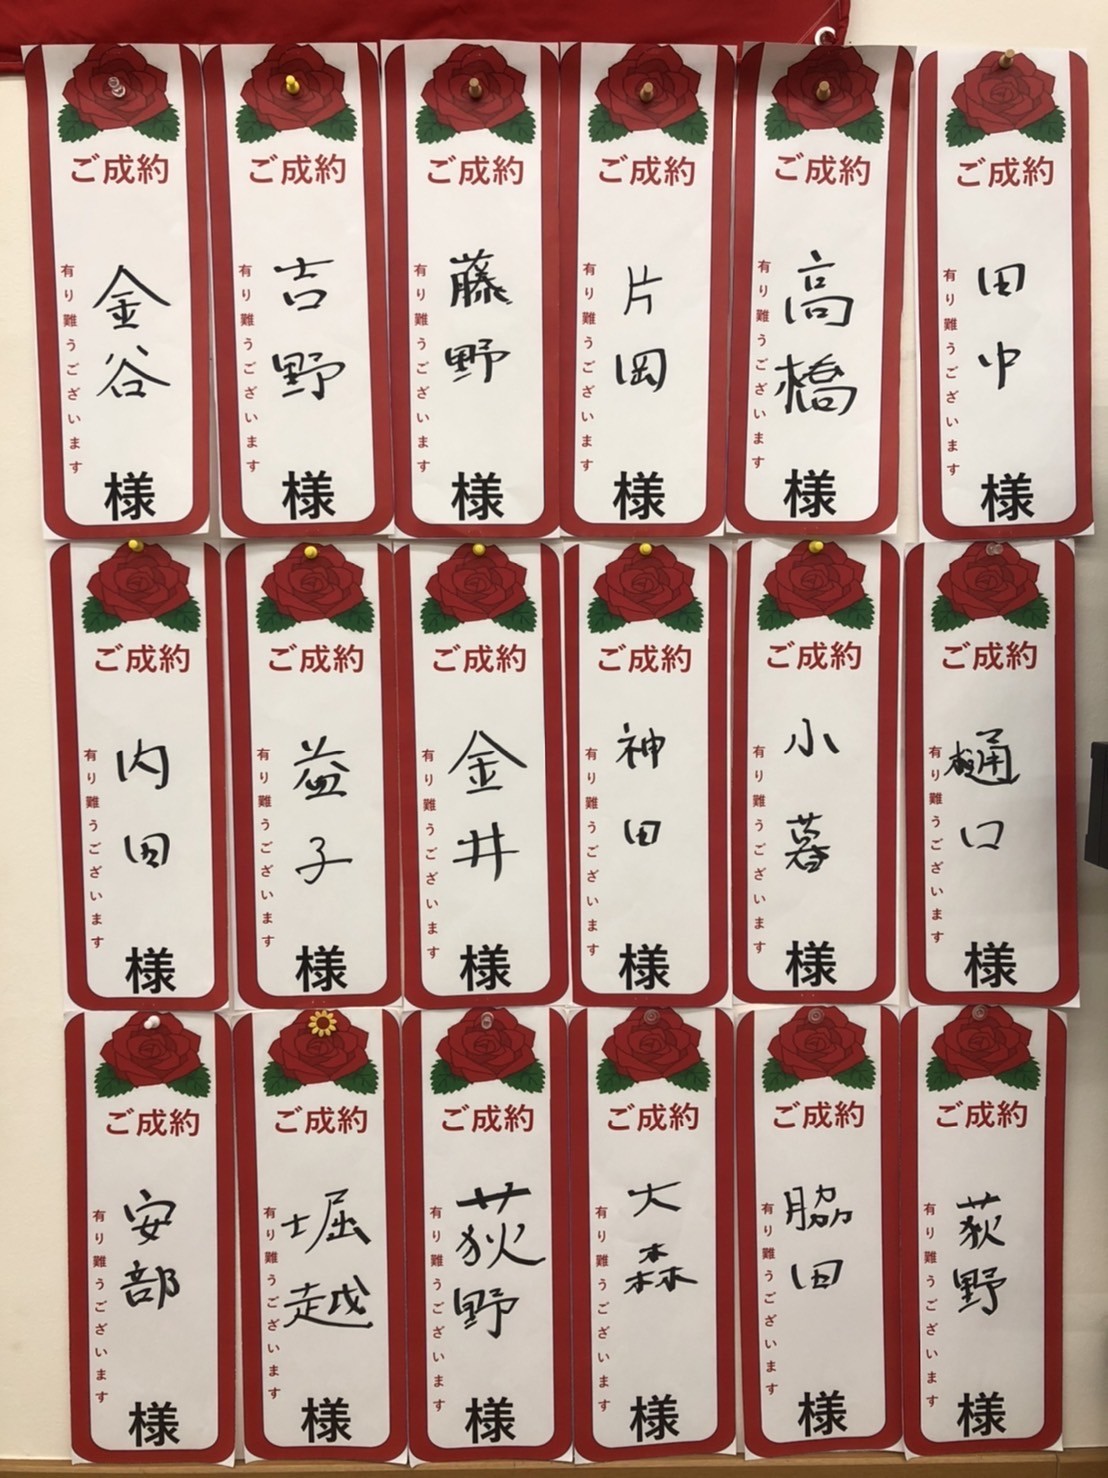 ご成約
有り難うございます
金谷
様
ご成約
有り難うございます
吉野
様
ご成約
有り難うございます
藤野
様
ご成約
有り難うございます
片岡
様
ご成約
有り難うございます
高橋
様
ご成約
有り難うございます
田中
様
ご成約
有り難うございます
内田
様
ご成約
有り難うございます
益子
様
ご成約
有り難うございます
金井
様
ご成約
有り難うございます
神田
様
ご成約
有り難うございます
小暮
様
ご成約
有り難うございます
樋口
様
ご成約
有り難うございます
安部
様
ご成約
有り難うございます
堀越
様
ご成約
有り難うございます
荻野
様
ご成約
有り難うございます
大森
様
ご成約
有り難うございます
脇田
様
ご成約
有り難うございます
荻野
様